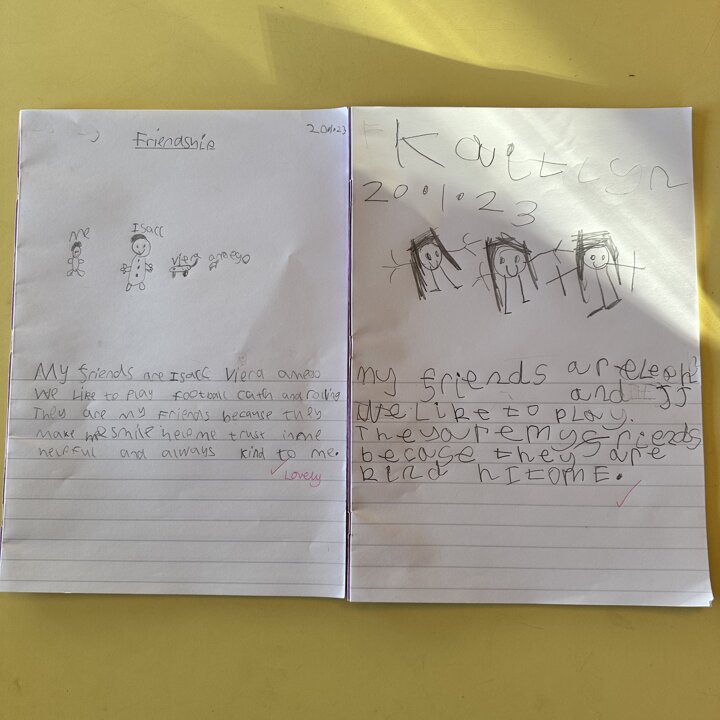 Friendship
20.1.23
me
Isacc
viera
amego
My friends are Isacc Viera amego
We Like to play football catch and
They are my Friends because they
make me smile help me trust in me
helpful and always kind to me.
Lovely
Kaitlyn
20.1.23
my friends are
and JJ
We Like to play.
They are my friends
becase they are
kind to mE.